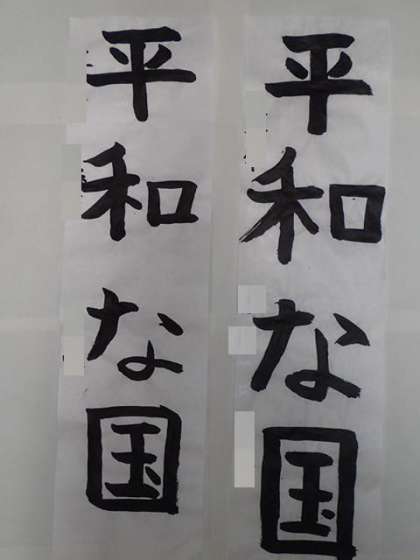 平和な国
平和な国